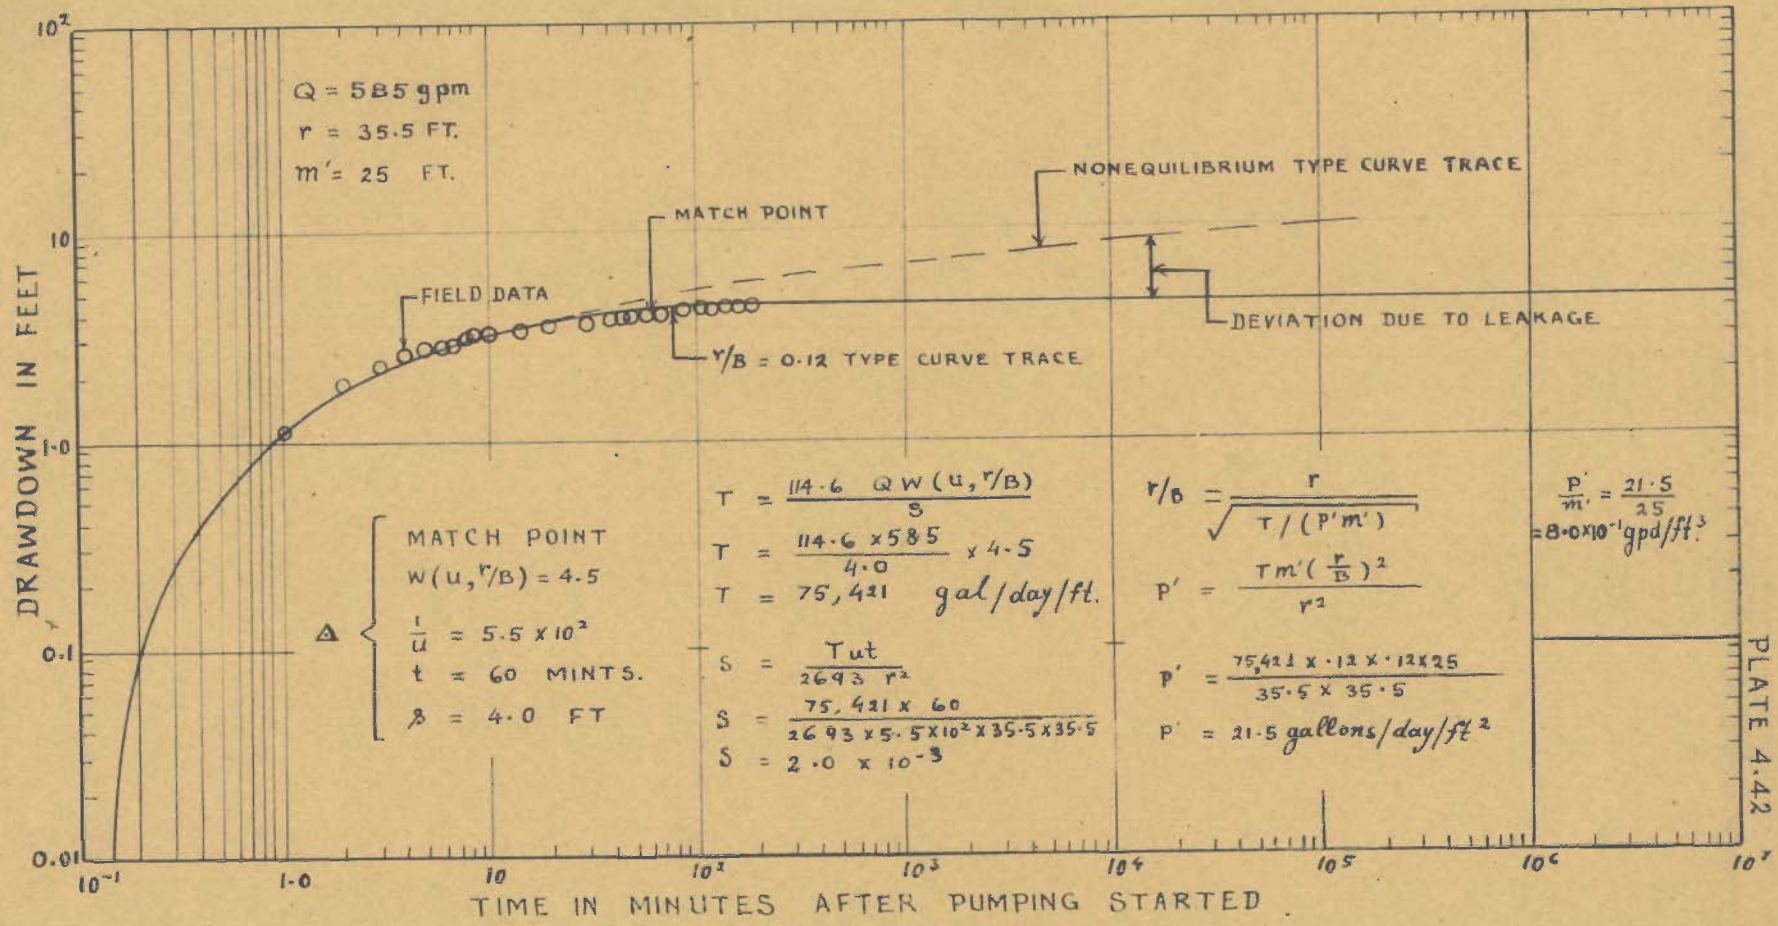 10²
10
1·0
0·1
0·01
DRAWDOWN IN FEET
Q = 585 gpm
r = 35·5 FT.
m' = 25 FT.
NONEQUILIBRIUM TYPE CURVE TRACE
MATCH POINT
FIELD DATA
DEVIATION DUE TO LEAKAGE
r/B = 0·12 TYPE CURVE TRACE
Δ
MATCH POINT
W(u, r/B) = 4·5
1/u = 5·5 x 10²
t = 60 MINTS.
s = 4·0 FT
T = 114·6 QW(u, r/B) / S
T = 114·6 x 585 / 4·0 x 4·5
T = 75,421 gal/day/ft.
S = Tut / 2693 r²
S = 75,421 x 60 / 2693 x 5·5 x 10² x 35·5 x 35·5
S = 2·0 x 10⁻³
r/B = r / √T/(P'm')
P' = Tm'(r/B)² / r²
P' = 75,421 x ·12 x ·12 x 25 / 35·5 x 35·5
P' = 21·5 gallons/day/ft²
P'/m' = 21·5/25
= 8·0x10⁻¹ gpd/ft³.
10⁻¹ 1·0 10 10² 10³ 10⁴ 10⁵ 10⁶ 10⁷
TIME IN MINUTES AFTER PUMPING STARTED
PLATE 4.42